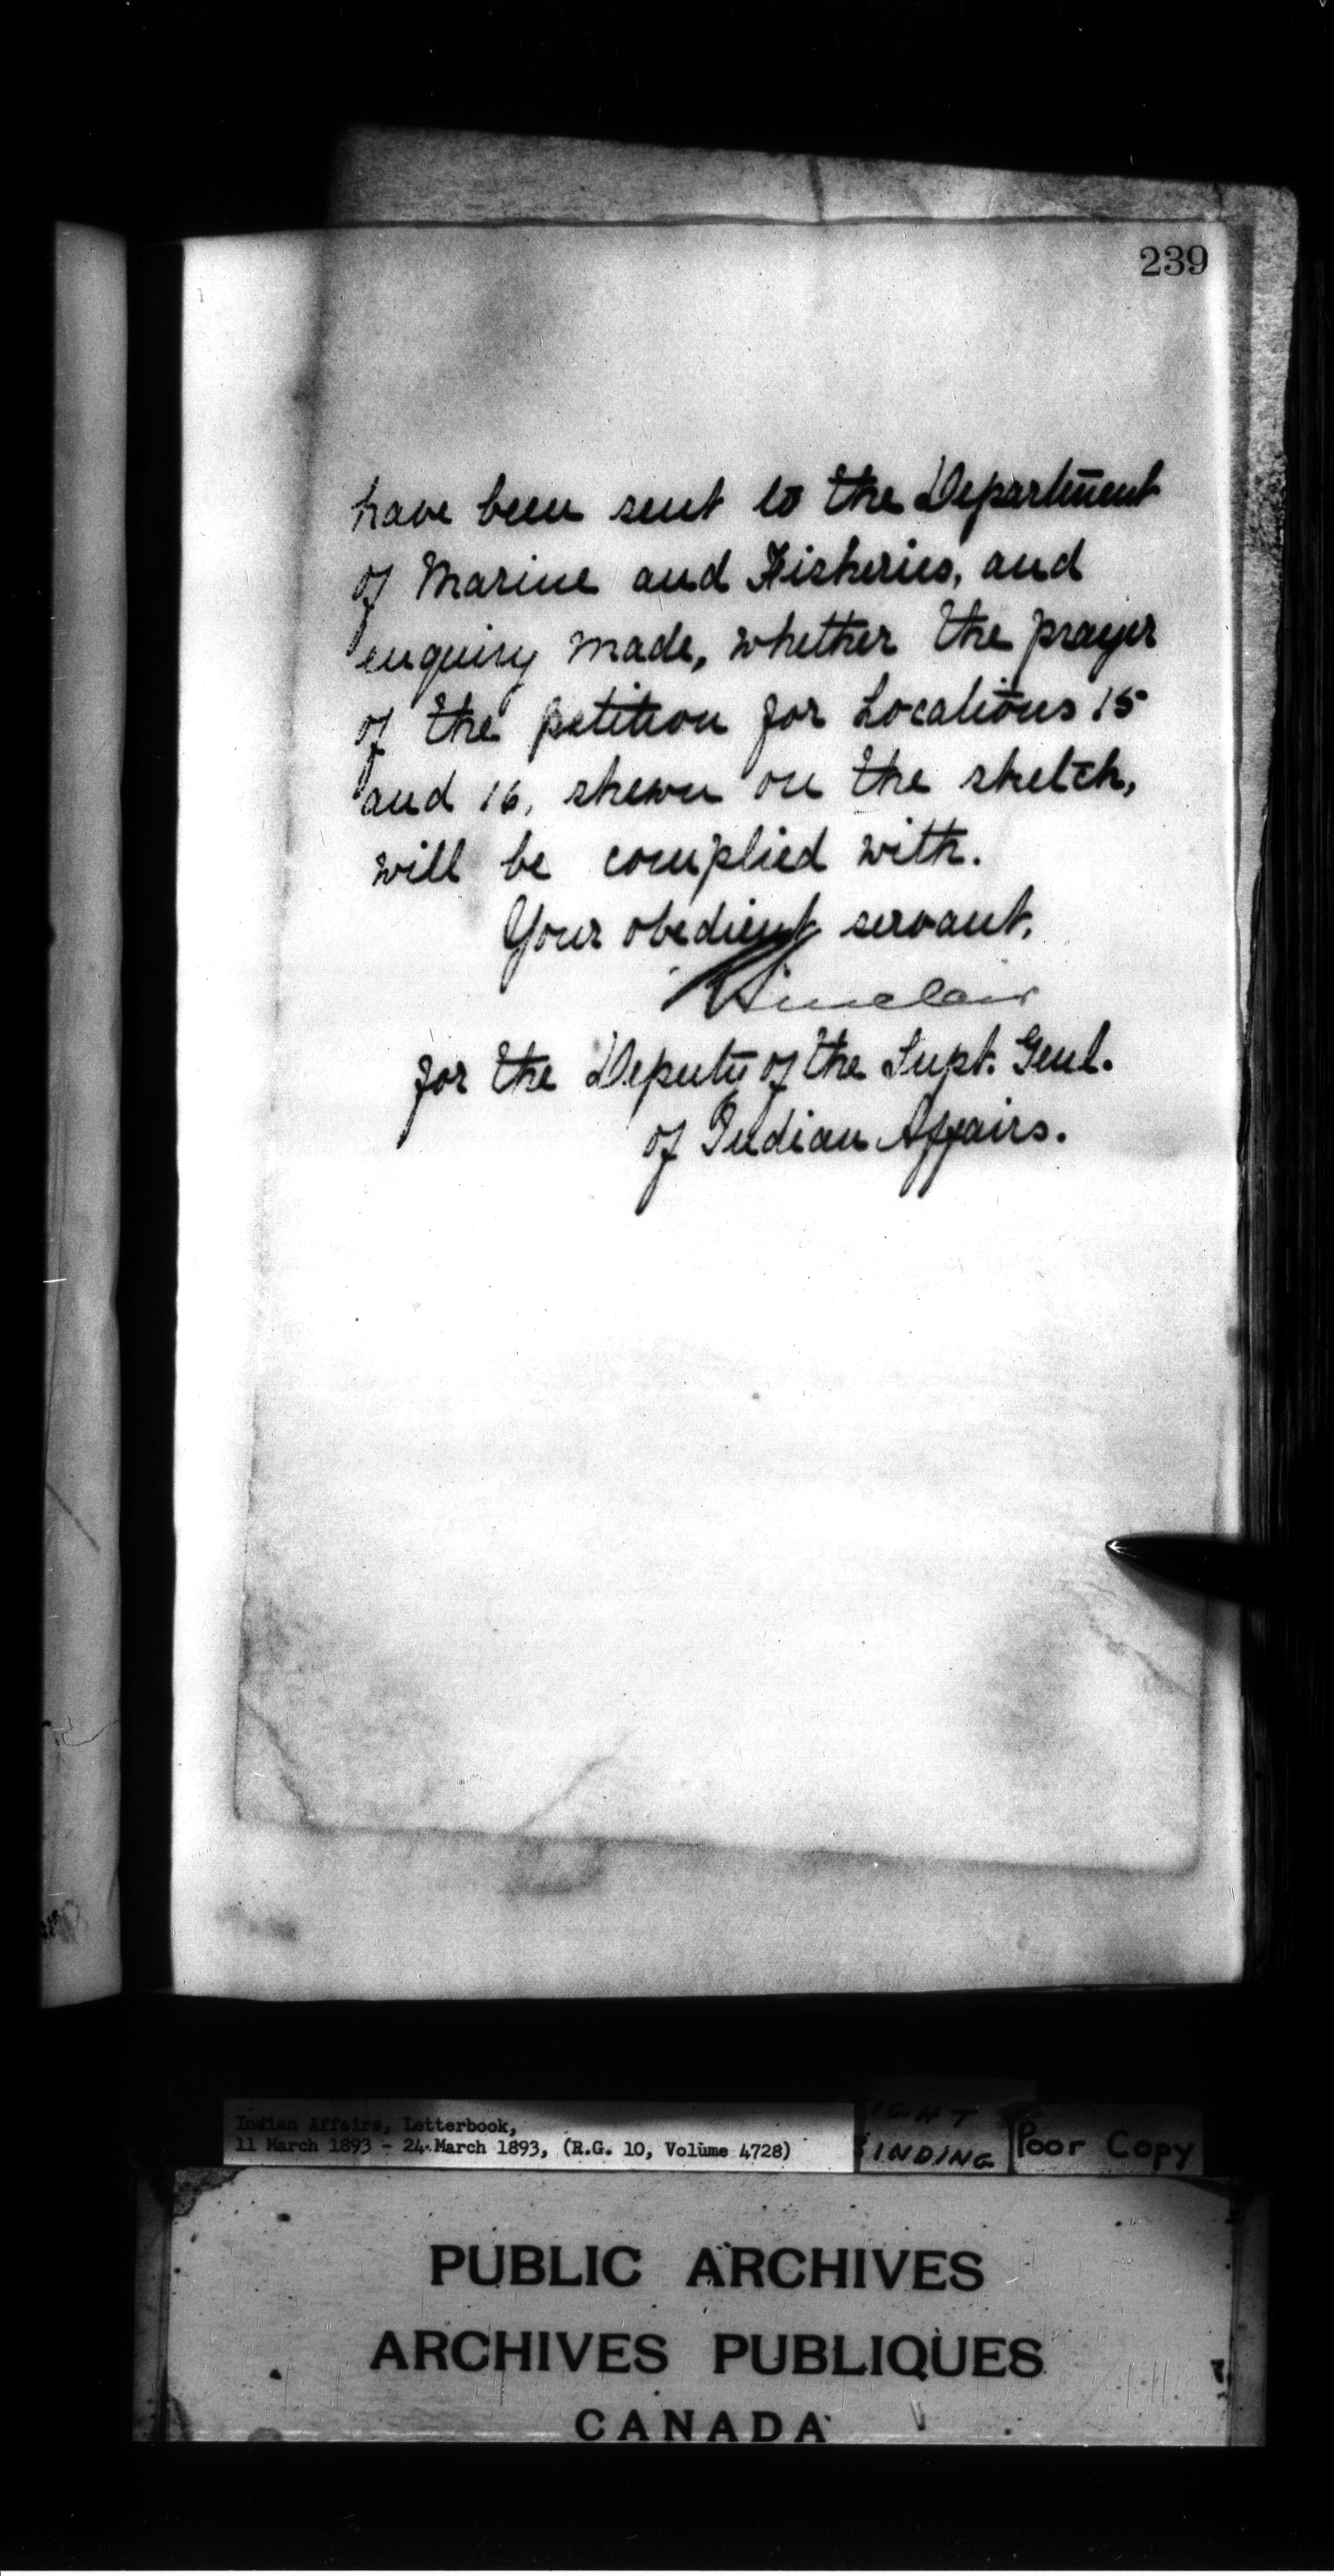 239
have been sent to the Department
of Marine and Fisheries, and
enquiry made, whether the prayer
of the petition for Locations 15
and 16, shewn on the sketch,
will be complied with.
Your obedient servant,
Sinclair
for the Deputy of the Supt. Genl.
of Indian Affairs.
Indian Affairs, Letterbook,
11 March 1893 - 24 March 1893, (R.G. 10, Volume 4728)
INDING
Poor Copy
PUBLIC ARCHIVES
ARCHIVES PUBLIQUES
CANADA